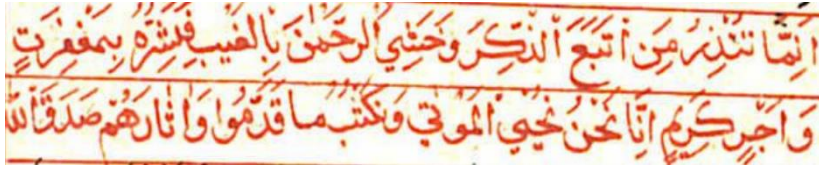 انما تنذر من اتبع الذكر وخشي الرحمن بالغيب فبشره بمغفرت
واجر كريم انا نحن نحيي الموتي ونكتب ما قدموا واثارهم صدق الله